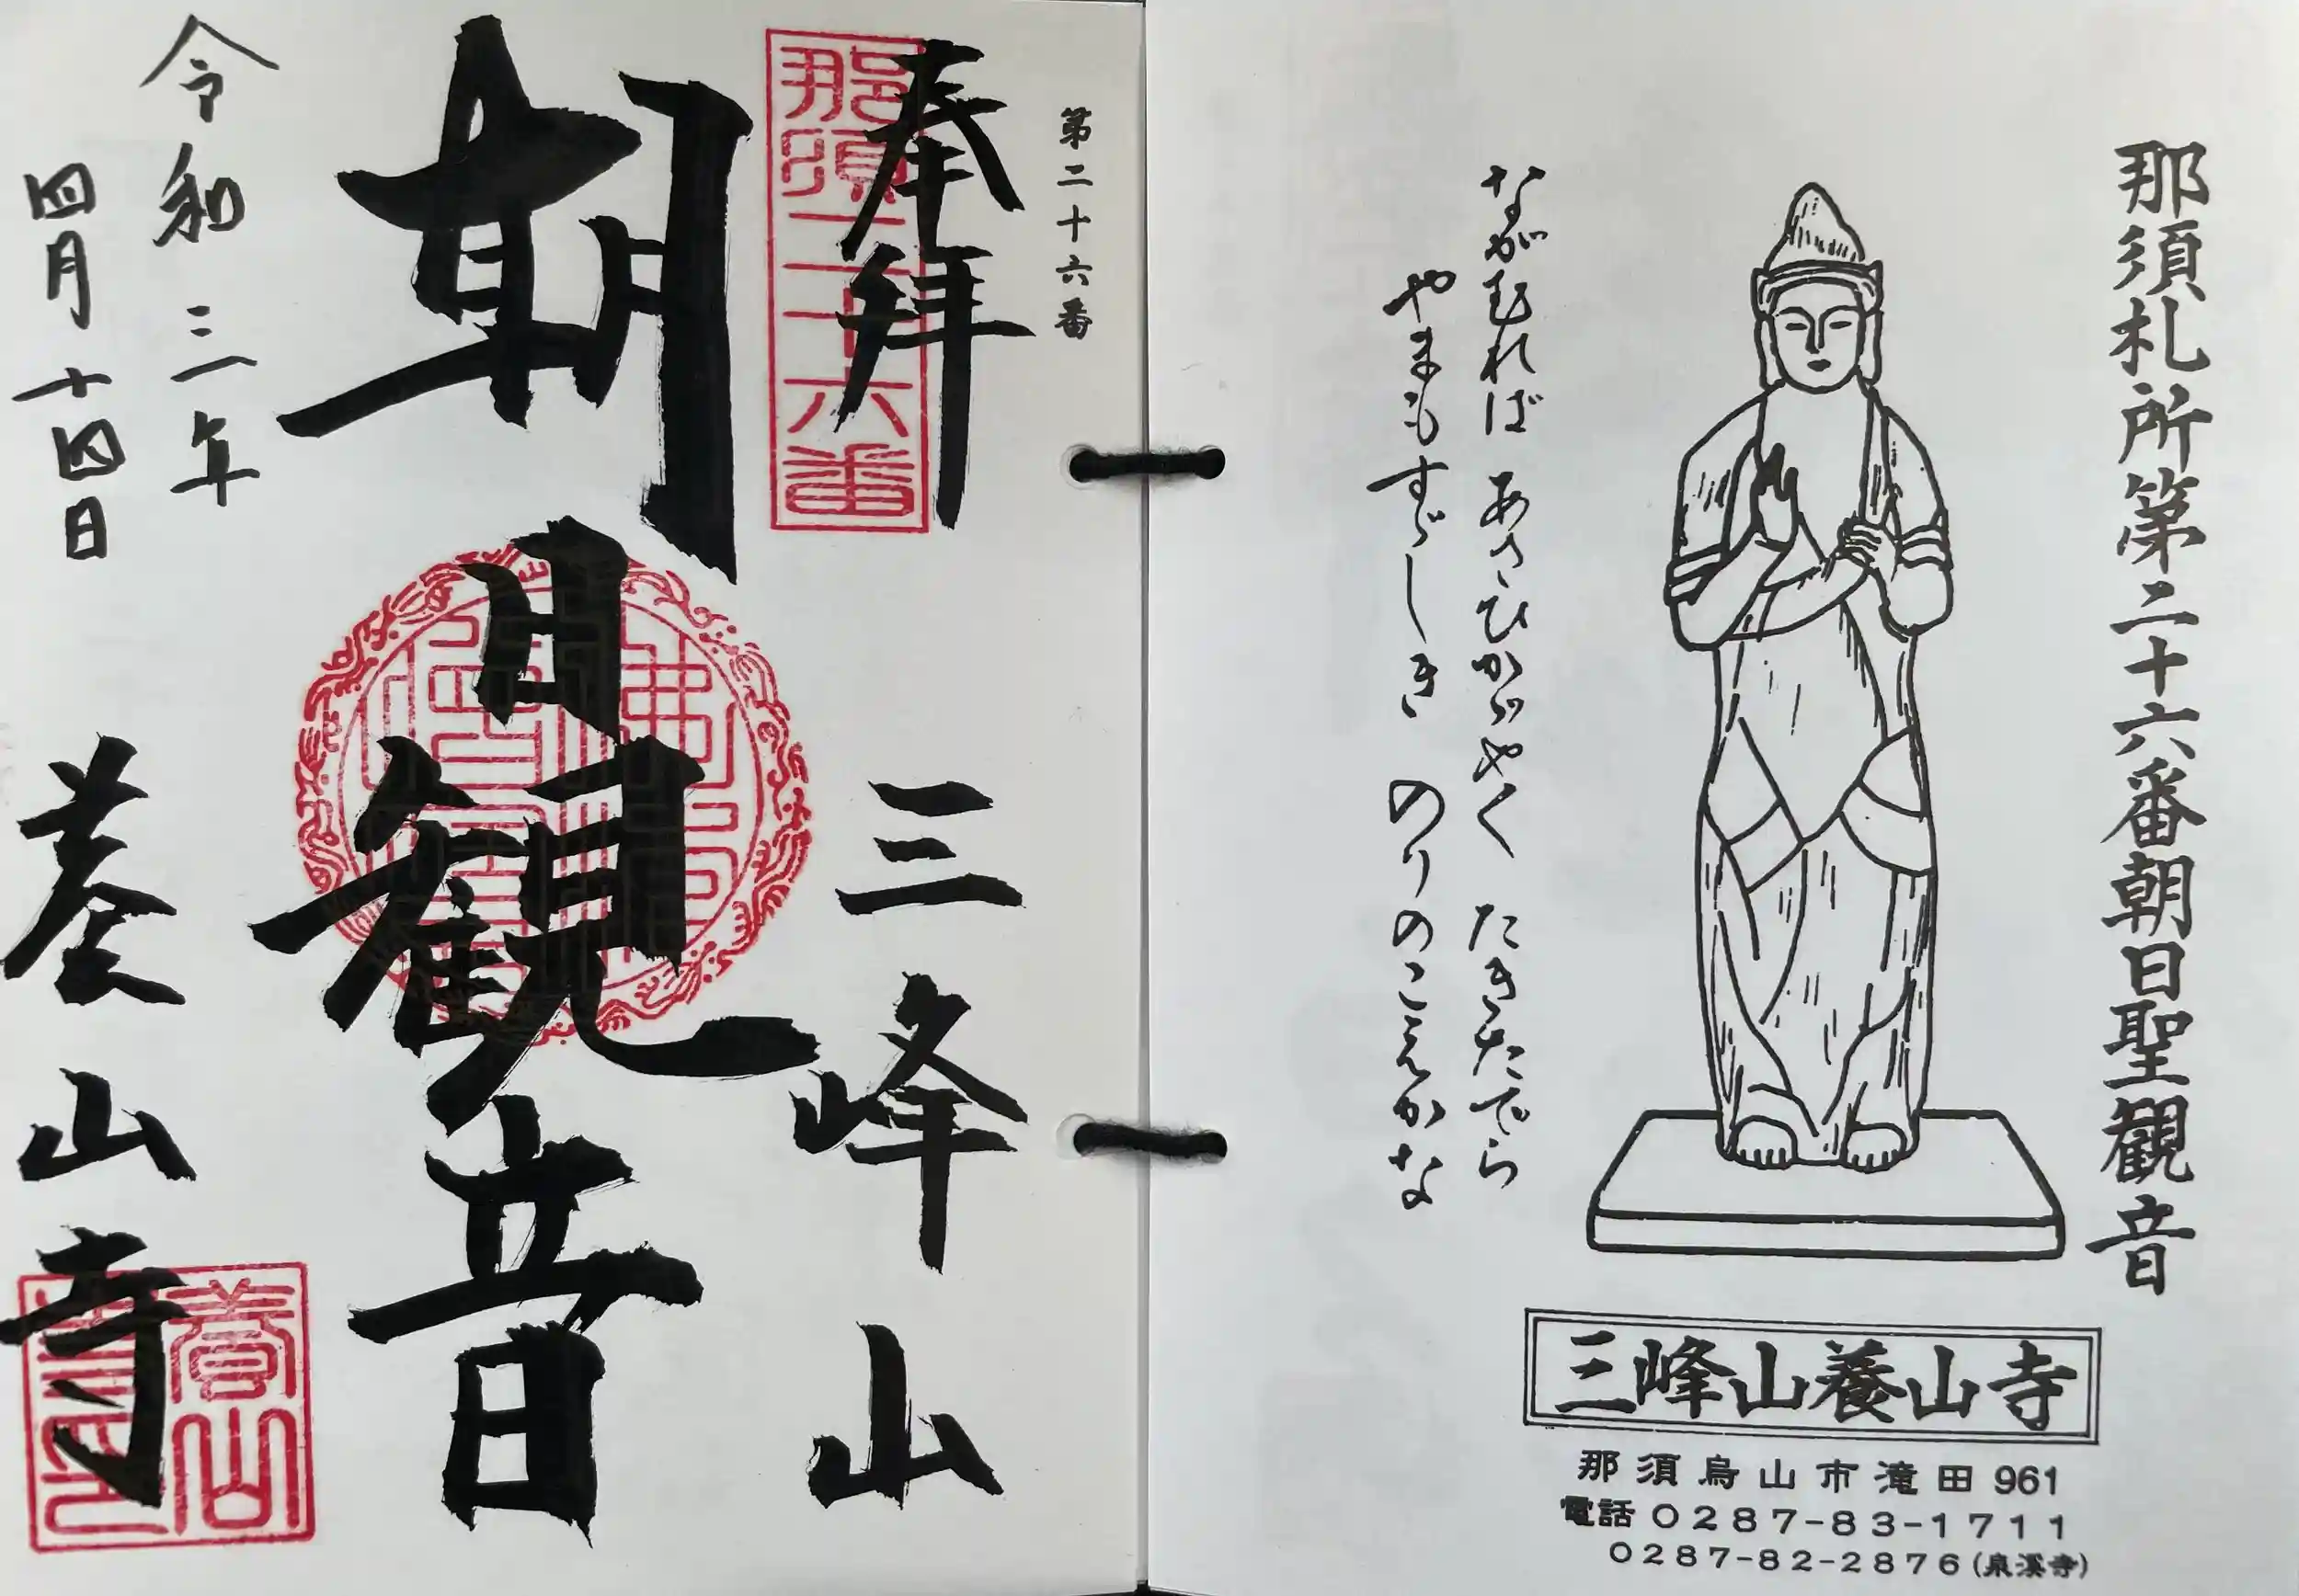 那須札所第二十六番朝日聖観音
ながむれば あさひかゞやく たきたでら
やまもすゞしき のりのこえかな
三峰山養山寺
那須烏山市滝田961
電話0287-83-1711
0287-82-2876(泉溪寺)
第二十六番
奉拝
那須二十六番
三峰山
朝日観音
令和三年
四月十四日
養山寺